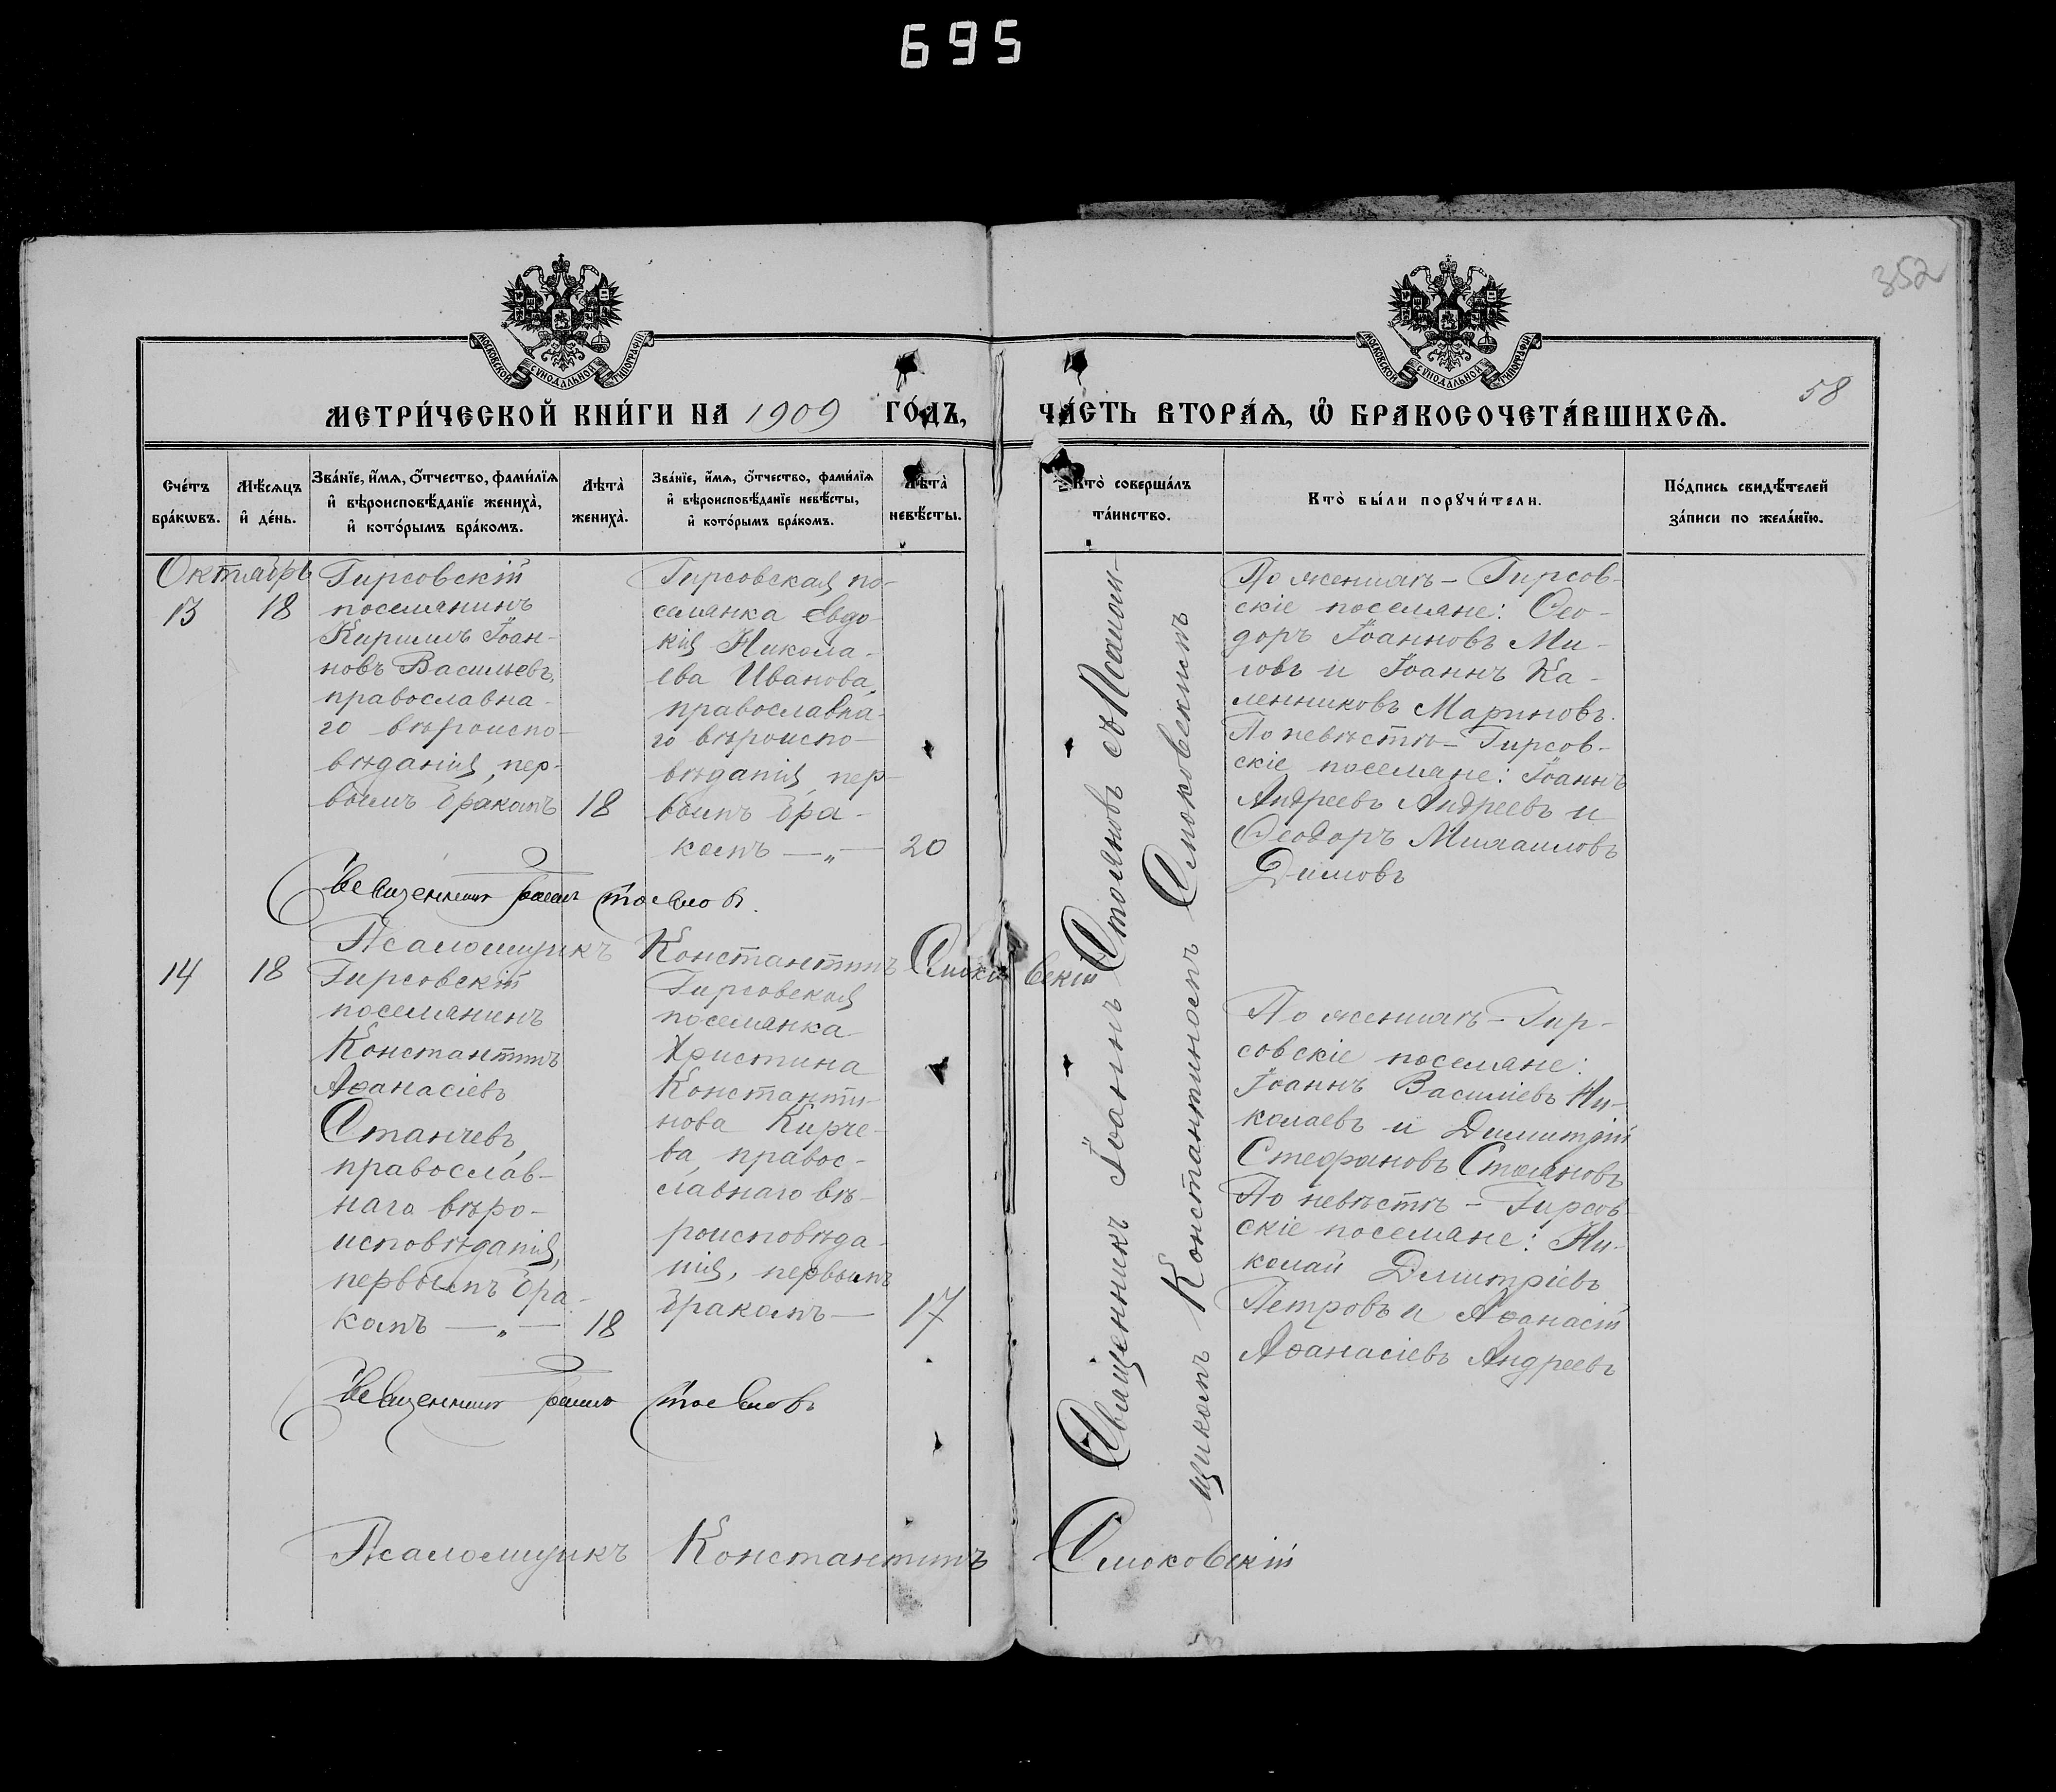 695
352
МОСКОВСКОЙ СѴНОДАЛЬНОЙ ТИПОГРАФІИ
МОСКОВСКОЙ СѴНОДАЛЬНОЙ ТИПОГРАФІИ
58
МЕТРИ́ЧЕСКОЙ КНИ́ГИ НА 1909 ГО́ДЪ,
ЧА́СТЬ ВТОРА́Ѧ, Ѽ БРАКОСОЧЕТА́ВШИХСѦ.
Сче́тъ
бра́кωвъ.
Мѣ́сѧцъ
и҆ де́нь.
Зва́нїе, и҆́мѧ, ѻ҆́тчество, фами́лїѧ
и҆ вѣроисповѣ́данїе жениха̀,
и҆ кото́рымъ бра́комъ.
Лѣ̑та
жениха̀.
Зва́нїе, и҆́мѧ, ѻ҆́тчество, фами́лїѧ
и҆ вѣроисповѣ́данїе невѣ́сты,
и҆ кото́рымъ бра́комъ.
Лѣ̑та
невѣ́сты.
Кто̀ соверша́лъ
та́инство.
Кто̀ бы́ли порꙋчи́тели.
По́дпись свидѣ́телей
за́писи по жела́нїю.
Октябрь
13
18
Гирсовскій
поселянинъ
Кириллъ Іоан-
новъ Васильевъ,
православна-
го вѣроиспо-
вѣданія, пер-
вымъ бракомъ
18
Гирсовская по-
селянка Евдо-
кія Никола-
ева Иванова,
православна-
го вѣроиспо-
вѣданія, пер-
вымъ бра-
комъ —„—
20
По женихѣ – Гирсов-
скіе поселяне: Ѳео-
доръ Іоанновъ Ми-
ловъ и Іоаннъ Ка-
ленниковъ Мариновъ.
По невѣстѣ – Гирсов-
скіе поселяне: Іоаннъ
Андреевъ Андреевъ и
Ѳеодоръ Михаиловъ
Димовъ
Священникъ Іоаннъ Стояновъ.
Псаломщикъ Константинъ Смоковскій
14
18
Гирсовскій
поселянинъ
Константинъ
Аѳанасіевъ
Станчевъ,
православ-
наго вѣро-
исповѣданія,
первымъ бра-
комъ —„—
18
Гирсовская
поселянка
Христина
Константи-
нова Кирче-
ва, правос-
лавнаго вѣ-
роисповѣда-
нія, первымъ
бракомъ —
17
Священникъ Іоаннъ Стояновъ съ Псалом-
щикомъ Константиномъ Смоковскимъ
По женихѣ – Гир-
совскіе поселяне:
Іоаннъ Василіевъ Ни-
колаевъ и Димитрій
Стефановъ Стояновъ
По невѣстѣ – Гирсов-
скіе поселяне: Ни-
колай Димитріевъ
Петровъ и Аѳанасій
Аѳанасіевъ Андреевъ
Священникъ Іоаннъ Стояновъ
Псаломщикъ Константинъ Смоковскій